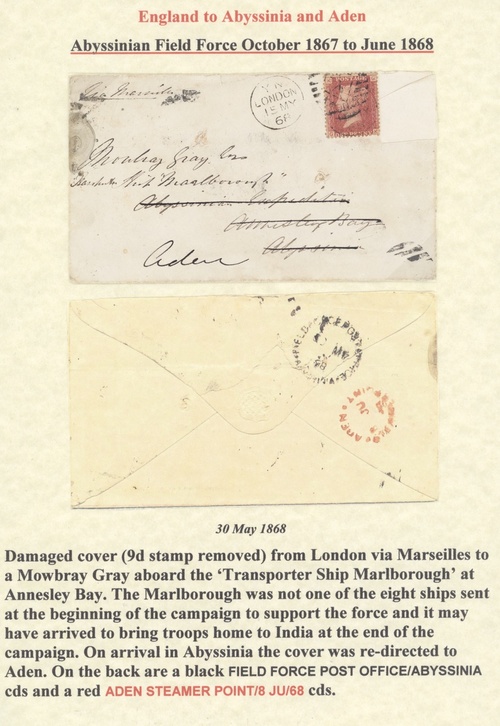 England to Abyssinia and Aden
Abyssinian Field Force October 1867 to June 1868
Via Marseilles
LONDON
MY
68
POSTAGE
Mowbray Gray Esq
Ship "Marlborough"
Abyssinian Expedition
Annesley Bay
Abyssinia
Aden
FIELD FORCE POST OFFICE
MY
68
ADEN
30 May 1868
Damaged cover (9d stamp removed) from London via Marseilles to
a Mowbray Gray aboard the ‘Transporter Ship Marlborough’ at
Annesley Bay. The Marlborough was not one of the eight ships sent
at the beginning of the campaign to support the force and it may
have arrived to bring troops home to India at the end of the
campaign. On arrival in Abyssinia the cover was re-directed to
Aden. On the back are a black FIELD FORCE POST OFFICE/ABYSSINIA
cds and a red ADEN STEAMER POINT/8 JU/68 cds.